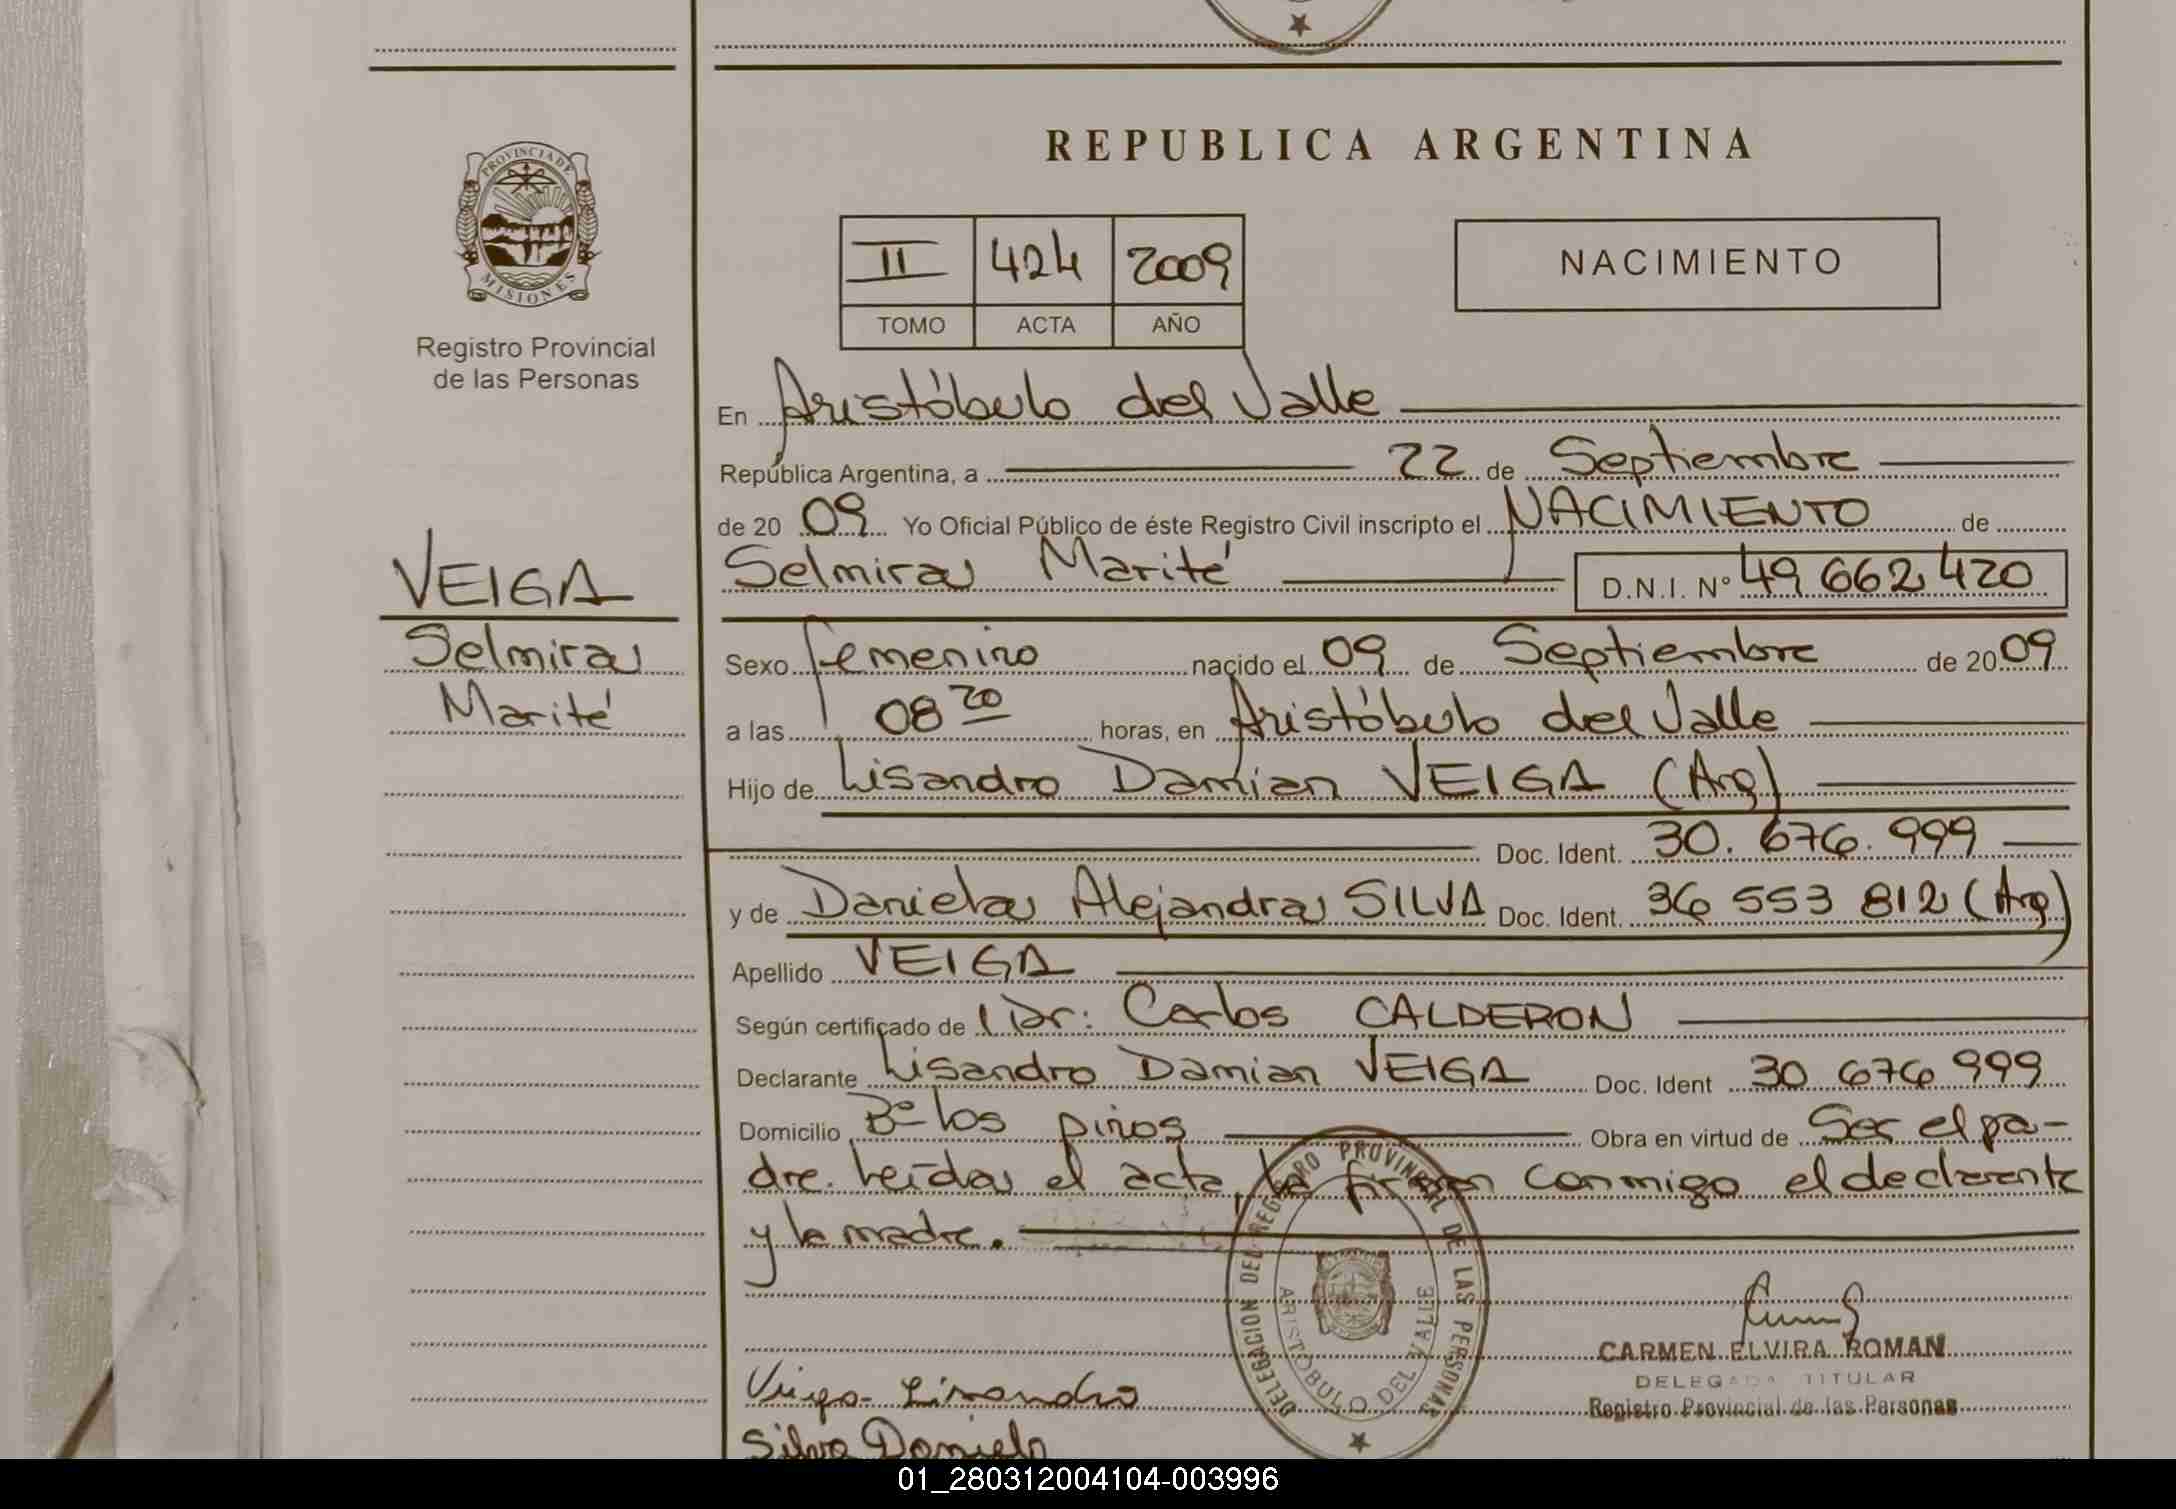 REPUBLICA ARGENTINA
PROVINCIA DE MISIONES
Registro Provincial
de las Personas
II 424 2009
TOMO ACTA AÑO
NACIMIENTO
En Aristóbulo del Valle
República Argentina, a 22 de Septiembre
de 20 09 Yo Oficial Público de éste Registro Civil inscripto el NACIMIENTO de
Selmira Marité D.N.I. Nº 49 662 420
VEIGA
Selmira
Marité
Sexo femenino nacido el 09 de Septiembre de 20 09
a las 08 20 horas, en Aristóbulo del Valle
Hijo de Lisandro Damian VEIGA (Arg)
Doc. Ident. 30.676.999
y de Daniela Alejandra SILVA Doc. Ident. 36 553 812 (Arg)
Apellido VEIGA
Según certificado de Dr: Carlos CALDERON
Declarante Lisandro Damian VEIGA Doc. Ident 30 676 999
Domicilio Bº los pinos Obra en virtud de Ser el pa-
dre. Leída el acta, la firman conmigo el declarante
y la madre.
DELEGACION DEL REGISTRO PROVINCIAL DE LAS PERSONAS
ARISTOBULO DEL VALLE
CARMEN ELVIRA ROMAN
DELEGADA TITULAR
Registro Provincial de las Personas
Veiga Lisandro
Silva Daniela
01_280312004104-003996